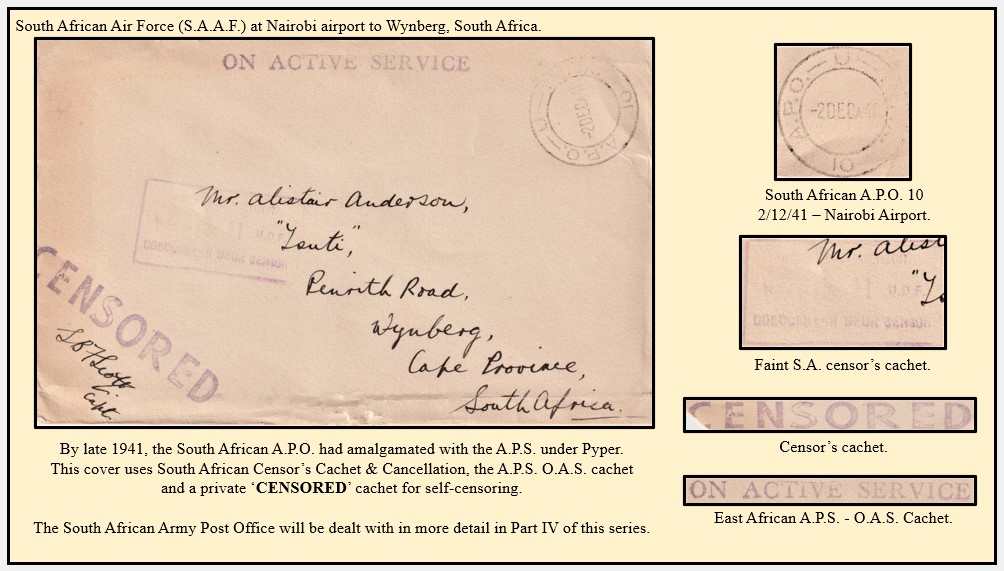 South African Air Force (S.A.A.F.) at Nairobi airport to Wynberg, South Africa.
ON ACTIVE SERVICE
A.P.O. — U — 10
-2DEC
Mr. Alistair Anderson,
"Tsuti",
Penrith Road,
Wynberg,
Cape Province,
South Africa.
U.D.F.
CENSORED
Capt
By late 1941, the South African A.P.O. had amalgamated with the A.P.S. under Pyper.
This cover uses South African Censor's Cachet & Cancellation, the A.P.S. O.A.S. cachet
and a private 'CENSORED' cachet for self-censoring.
The South African Army Post Office will be dealt with in more detail in Part IV of this series.
A.P.O. — U —
-2DEC 41
10
South African A.P.O. 10
2/12/41 – Nairobi Airport.
Mr. Alist
U.D.F.
Faint S.A. censor's cachet.
CENSORED
Censor's cachet.
ON ACTIVE SERVICE
East African A.P.S. - O.A.S. Cachet.